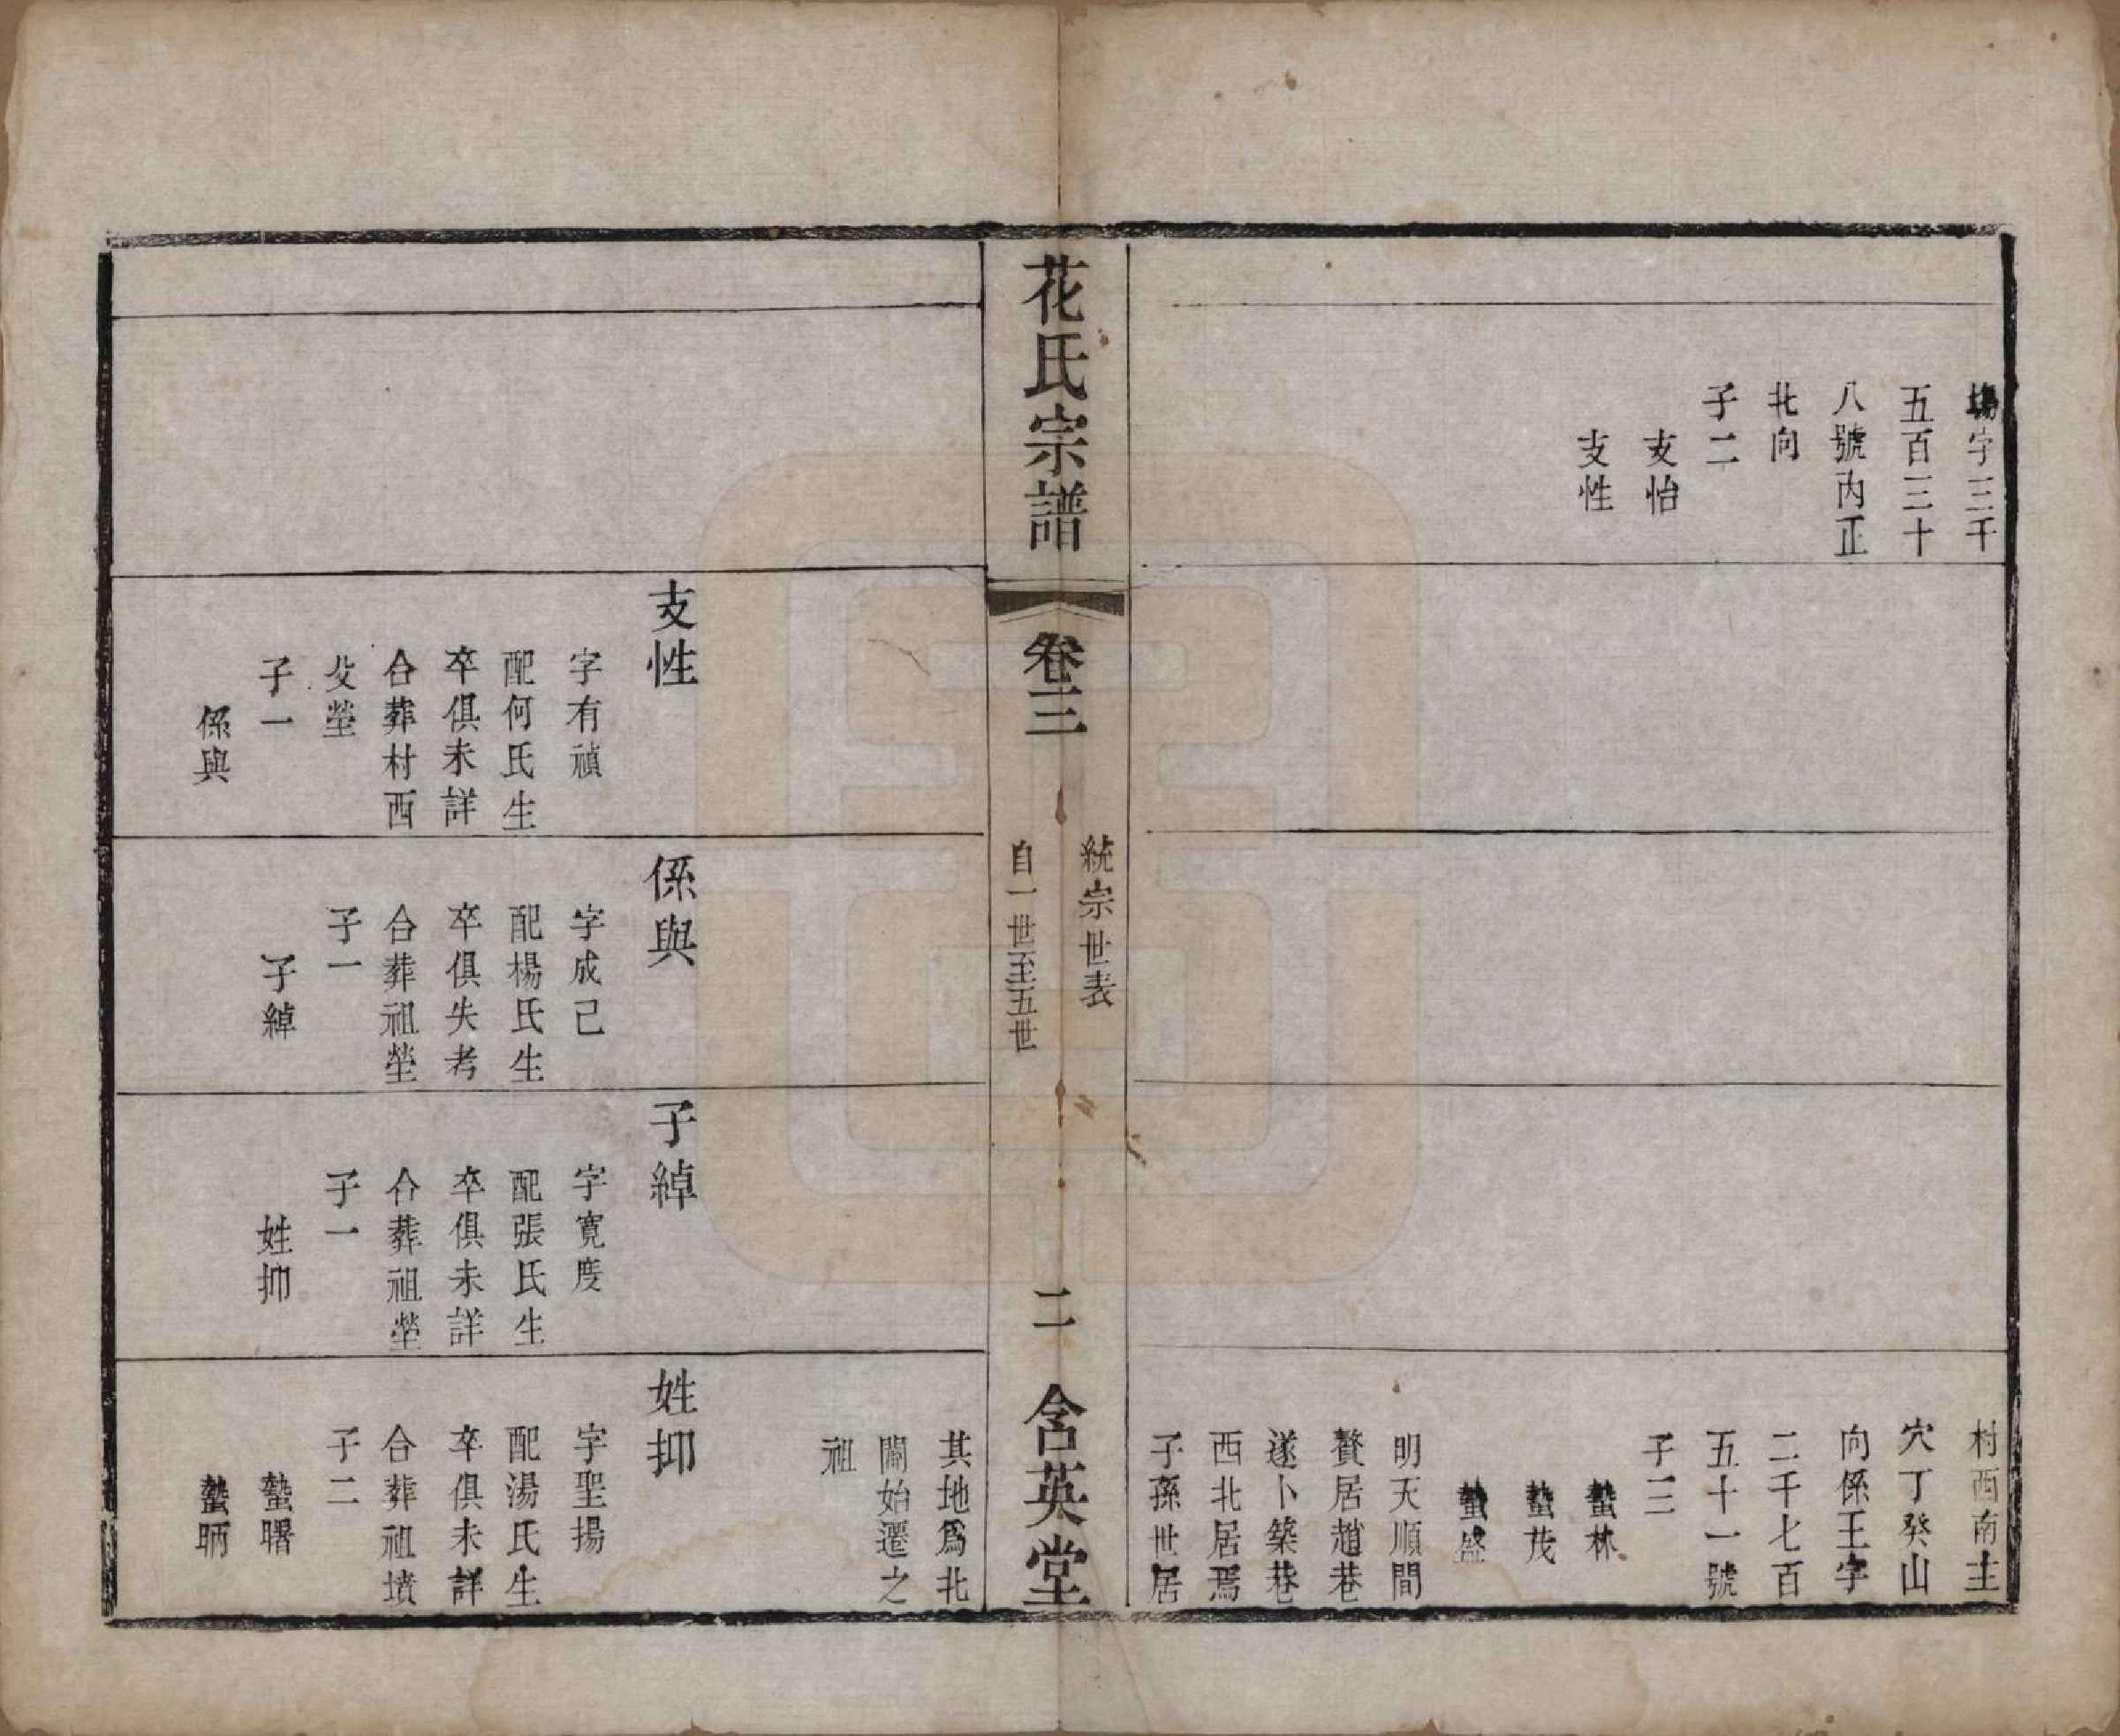 塲字三千
五百三十
八號內正
北向
子二
支怡
支性
村西南主
穴丁癸山
向係王字
二千七百
五十一號
子三
蟄林
蟄茂
蟄盛
明天順間
贅居趙巷
遂卜築巷
西北居焉
子孫世居
花氏宗譜
卷三
統宗世表
自一世至五世
二
含英堂
其地爲北
關始遷之
祖
支性
字有禎
配何氏生
卒俱未詳
合葬村西
父塋
子一
係與
係與
字成己
配楊氏生
卒俱失考
合葬祖塋
子一
子綽
子綽
字寬度
配張氏生
卒俱未詳
合葬祖塋
子一
姓抑
姓抑
字聖揚
配湯氏生
卒俱未詳
合葬祖墳
子二
蟄曙
蟄昞